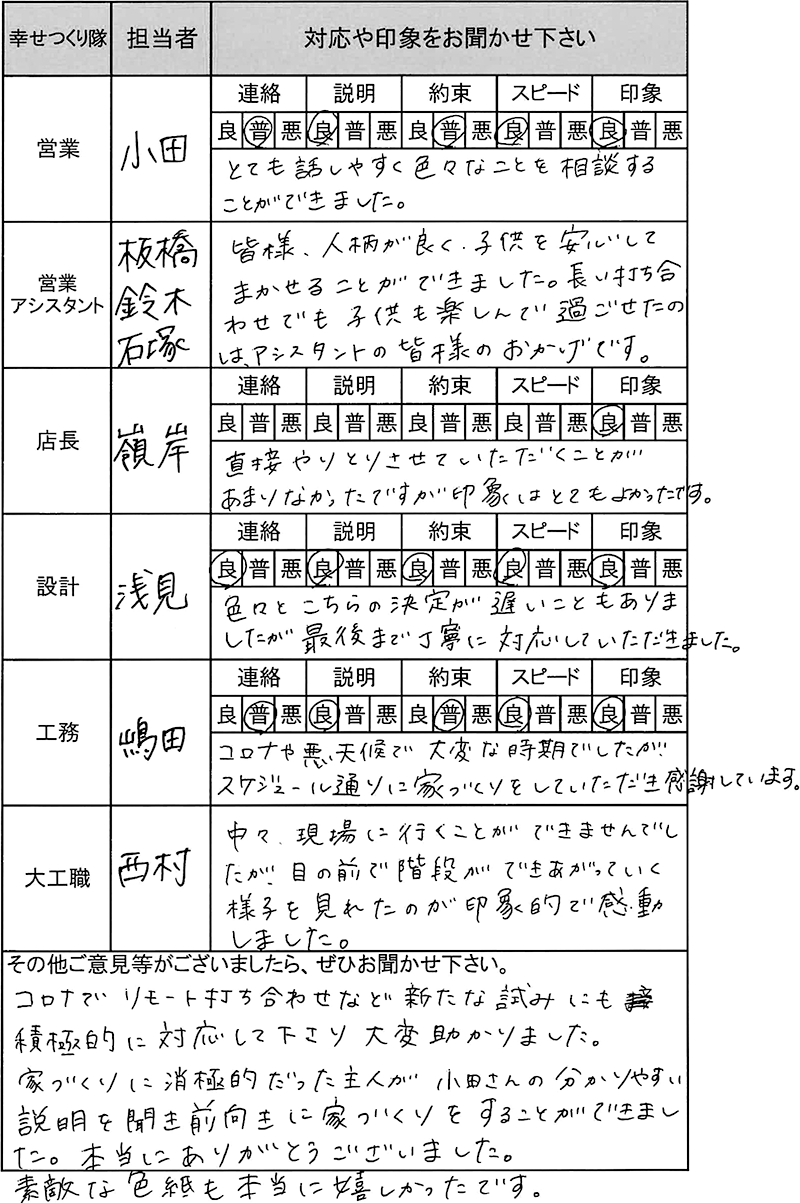 幸せつくり隊 担当者 対応や印象をお聞かせ下さい
連絡 説明 約束 スピード 印象
営業 小田 良 普 悪 良 普 悪 良 普 悪 良 普 悪 良 普 悪
とても話しやすく色々なことを相談する
ことができました。
営業
アシスタント
板橋
鈴木
石塚
皆様、人柄が良く、子供を安心して
まかせることができました。長い打ち合
わせでも子供も楽しんで過ごせたの
は、アシスタントの皆様のおかげです。
連絡 説明 約束 スピード 印象
店長 嶺岸 良 普 悪 良 普 悪 良 普 悪 良 普 悪 良 普 悪
直接やりとりさせていただくことが
あまりなかったですが印象はとてもよかったです。
連絡 説明 約束 スピード 印象
設計 浅見 良 普 悪 良 普 悪 良 普 悪 良 普 悪 良 普 悪
色々とこちらの決定が遅いこともありま
したが最後まで丁寧に対応していただきました。
連絡 説明 約束 スピード 印象
工務 嶋田 良 普 悪 良 普 悪 良 普 悪 良 普 悪 良 普 悪
コロナや悪天候で大変な時期でしたが
スケジュール通りに家づくりをしていただき感謝しています。
大工職 西村
中々、現場に行くことができませんでし
たが、目の前で階段ができあがっていく
様子を見れたのが印象的で感動
しました。
その他ご意見等がございましたら、ぜひお聞かせ下さい。
コロナでリモート打ち合わせなど新たな試みにも
積極的に対応して下さり大変助かりました。
家づくりに消極的だった主人が小田さんの分かりやすい
説明を聞き前向きに家づくりをすることができまし
た。本当にありがとうございました。
素敵な色紙も本当に嬉しかったです。